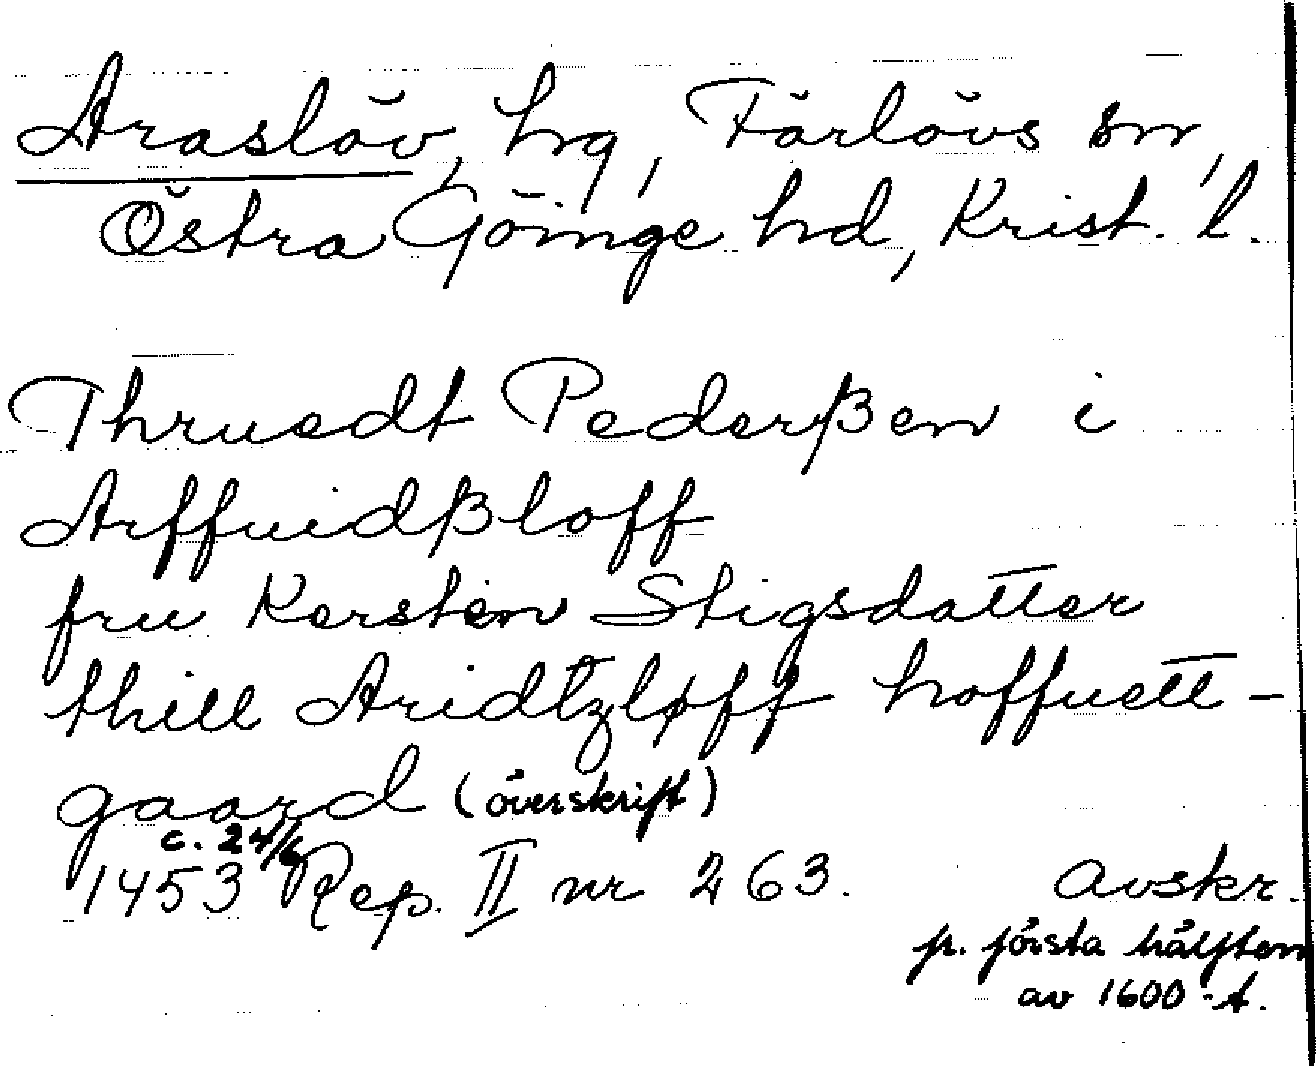 Araslöv, hg, Färlövs sn,
Östra Göinge hd, Krist. l.
Thruedt Pederßen i
Arffuidßloff
fru Kersten Stigsdatter
thill Aridtzløff hoffuett-
gaard (överskrift)
c. 24/6
1453 Rep. II nr 263. Avskr.
fr. första hälften
av 1600-t.